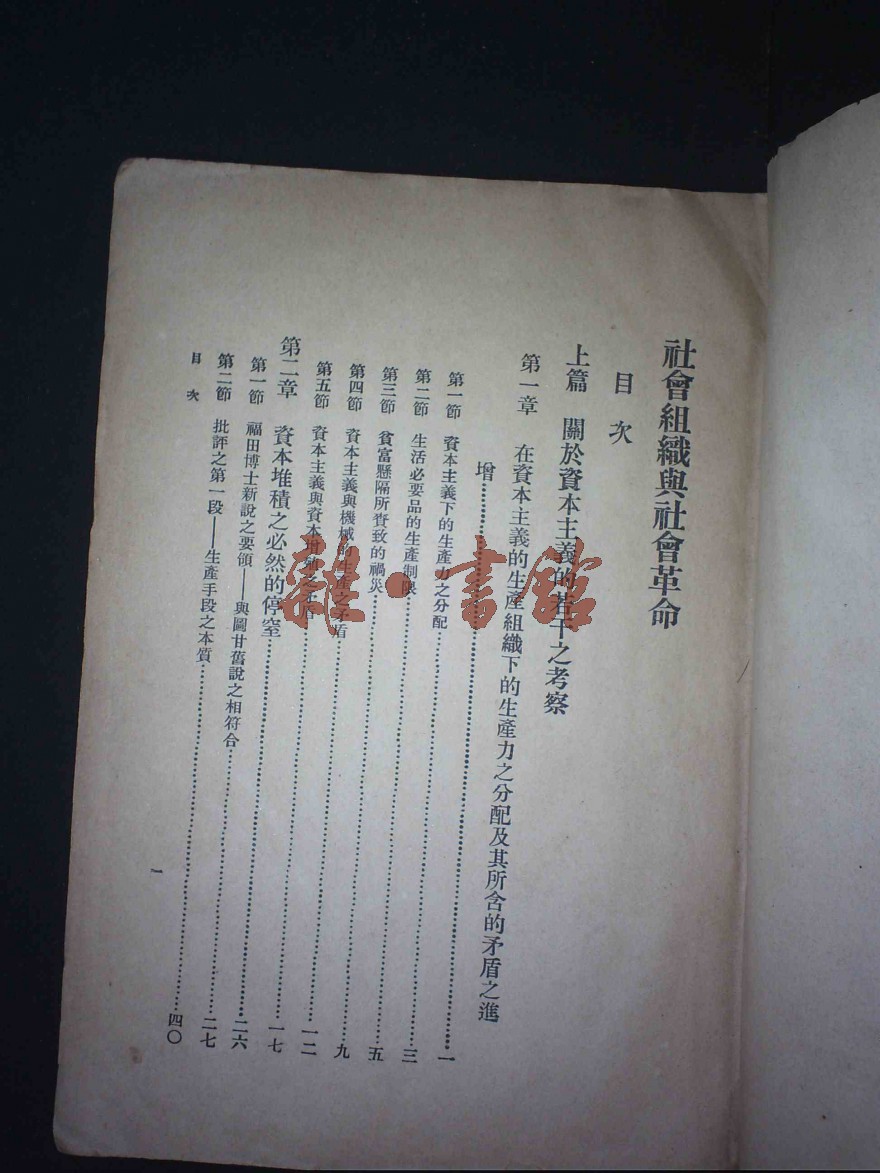 社會組織與社會革命
目次
上篇 關於資本主義的若干之考察
第一章 在資本主義的生產組織下的生產力之分配及其所含的矛盾之進
增……一
第一節 資本主義下的生產力之分配……三
第二節 生活必要品的生產制限……五
第三節 貧富懸隔所賫致的禍災……九
第四節 資本主義與機械的生產之矛盾……一二
第五節 資本主義與資本增殖之矛盾……一七
第二章 資本堆積之必然的停窒……二六
第一節 福田博士新說之要領——與圖甘舊說之相符合……二七
第二節 批評之第一段——生產手段之本質……四〇
目次
一
雜·書館